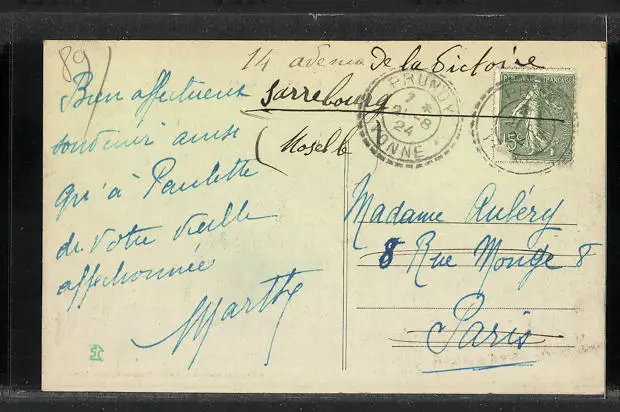 89
14 avenue de la Victoire
Sarrebourg
(Moselle
Bien affectueux
souvenir ainsi
qu'à Paulette
de votre vieille
affectionnée
Marthe
PRUNOY
7 *
21-8
24
YONNE
REPUBLIQUE FRANÇAISE
15c
Madame Aubéry
8 Rue Monge 8
Paris